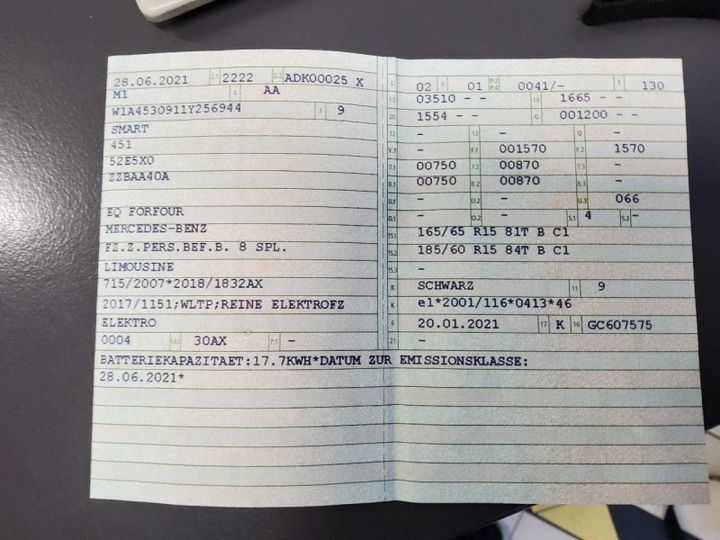 28.06.2021 2.1 2222 2.2 ADK00025 X
M1 4 AA
W1A4530911Y256944 3 9
SMART
451
52E5X0
ZZBAA40A
EQ FORFOUR
MERCEDES-BENZ
FZ.Z.PERS.BEF.B. 8 SPL.
LIMOUSINE
715/2007*2018/1832AX
2017/1151;WLTP;REINE ELEKTROFZ
ELEKTRO
0004 14.1 30AX P.5 -
L 02 9 01 P.2 P.4 0041/- T 130
18 03510 - - 19 1665 - -
20 1554 - - G 001200 - -
12 - 13 - Q -
V.7 - F.1 001570 F.2 1570
7.1 00750 7.2 00870 7.3 -
8.1 00750 8.2 00870 8.3 -
U.1 - U.2 - U.3 066
O.1 - O.2 - S.1 4 S.2 -
15.1 165/65 R15 81T B C1
15.2 185/60 R15 84T B C1
15.3 -
R SCHWARZ 11 9
K e1*2001/116*0413*46
6 20.01.2021 17 K 16 GC607575
21 -
BATTERIEKAPAZITAET:17.7KWH*DATUM ZUR EMISSIONSKLASSE:
28.06.2021*